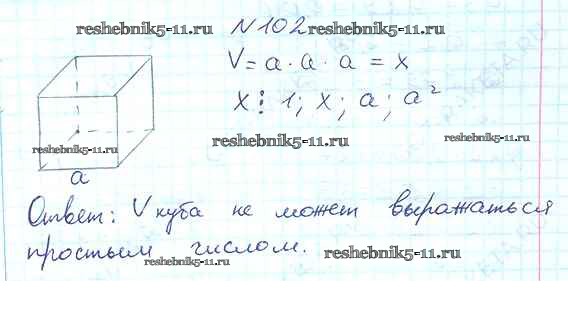 N 102
reshebnik5-11.ru
reshebnik5-11.ru
V = a · a · a = x
x ⋮ 1; x; a; a²
reshebnik5-11.ru
reshebnik5-11.ru
reshebnik5-11.ru
a
Ответ: V куба не может выражаться
простым числом.
reshebnik5-11.ru
reshebnik5-11.ru